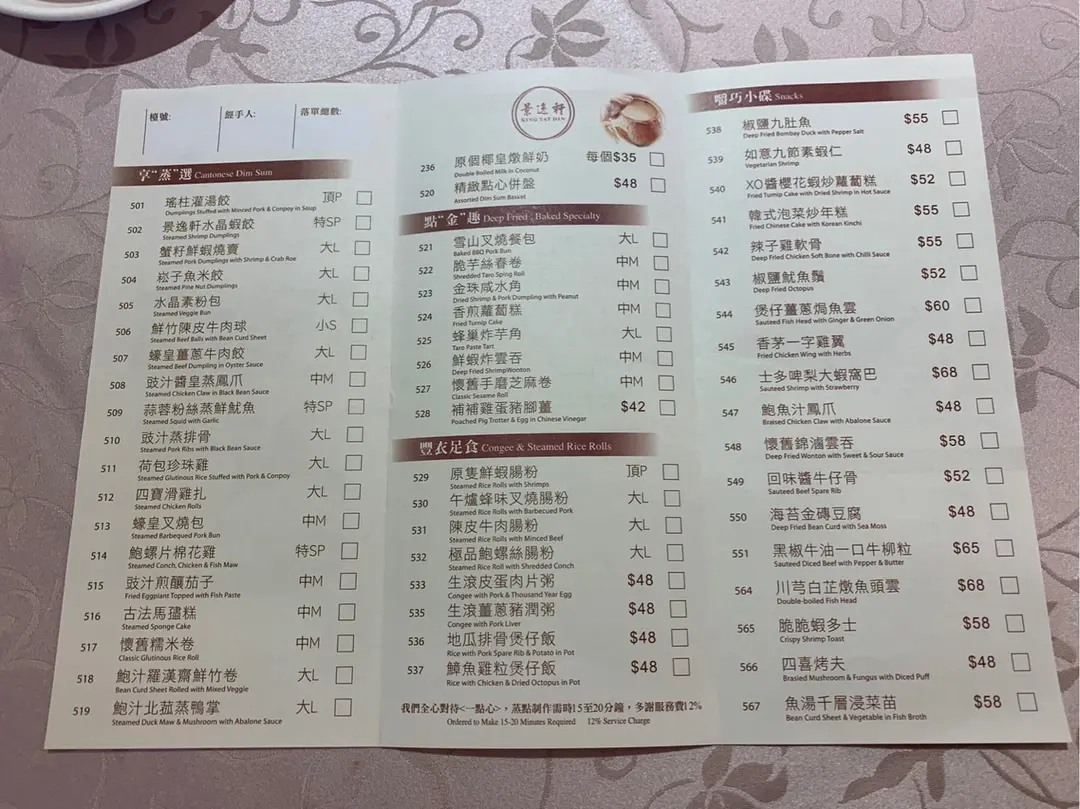 檯號:
經手人:
落單總數:
享“蒸”選 Cantonese Dim Sum
501 瑤柱灌湯餃 頂P
Dumplings Stuffed with Minced Pork & Conpoy in Soup
502 景逸軒水晶蝦餃 特SP
Steamed Shrimp Dumplings
503 蟹籽鮮蝦燒賣 大L
Steamed Pork Dumplings with Shrimp & Crab Roe
504 崧子魚米餃 大L
Steamed Pine Nut Dumplings
505 水晶素粉包 大L
Steamed Veggie Bun
506 鮮竹陳皮牛肉球 小S
Steamed Beef Balls with Bean Curd Sheet
507 蠔皇薑蔥牛肉餃 大L
Steamed Beef Dumpling in Oyster Sauce
508 豉汁醬皇蒸鳳爪 中M
Steamed Chicken Claw in Black Bean Sauce
509 蒜蓉粉絲蒸鮮魷魚 特SP
Steamed Squid with Garlic
510 豉汁蒸排骨 大L
Steamed Pork Ribs with Black Bean Sauce
511 荷包珍珠雞 大L
Steamed Glutinous Rice Stuffed with Pork & Conpoy
512 四寶滑雞扎 大L
Steamed Chicken Rolls
513 蠔皇叉燒包 中M
Steamed Barbequed Pork Bun
514 鮑螺片棉花雞 特SP
Steamed Conch, Chicken & Fish Maw
515 豉汁煎釀茄子 中M
Fried Eggplant Topped with Fish Paste
516 古法馬孻糕 中M
Steamed Sponge Cake
517 懷舊糯米卷 中M
Classic Glutinous Rice Roll
518 鮑汁羅漢齋鮮竹卷 大L
Bean Curd Sheet Rolled with Mixed Veggie
519 鮑汁北菰蒸鴨掌 大L
Steamed Duck Maw & Mushroom with Abalone Sauce
景逸軒
KING YAT HIN
236 原個椰皇燉鮮奶 每個$35
Double Boiled Milk in Coconut
520 精緻點心併盤 $48
Assorted Dim Sum Basket
點“金”趣 Deep Fried , Baked Specialty
521 雪山叉燒餐包 大L
Baked BBQ Pork Bun
522 脆芋絲春卷 中M
Shredded Taro Spring Roll
523 金珠咸水角 中M
Dried Shrimp & Pork Dumpling with Peanut
524 香煎蘿蔔糕 中M
Fried Turnip Cake
525 蜂巢炸芋角 大L
Taro Paste Tart
526 鮮蝦炸雲吞 中M
Deep Fried ShrimpWonton
527 懷舊手磨芝麻卷 中M
Classic Sesame Roll
528 補補雞蛋豬腳薑 $42
Poached Pig Trotter & Egg in Chinese Vinegar
豐衣足食 Congee & Steamed Rice Rolls
529 原隻鮮蝦腸粉 頂P
Steamed Rice Rolls with Shrimps
530 午爐蜂味叉燒腸粉 大L
Steamed Rice Rolls with Barbecued Pork
531 陳皮牛肉腸粉 大L
Steamed Rice Rolls with Minced Beef
532 極品鮑螺絲腸粉 大L
Steamed Rice Roll with Shredded Conch
533 生滾皮蛋肉片粥 $48
Congee with Pork & Thousand Year Egg
535 生滾薑蔥豬潤粥 $48
Congee with Pork Liver
536 地瓜排骨煲仔飯 $48
Rice with Pork Spare Rib & Potato in Pot
537 鱆魚雞粒煲仔飯 $48
Rice with Chicken & Dried Octopus in Pot
我們全心對待<一點心>，蒸點制作需時15至20分鐘，多謝服務費12%
Ordered to Make 15-20 Minutes Required 12% Service Charge
巧小碟 Snacks
538 椒鹽九肚魚 $55
Deep Fried Bombay Duck with Pepper Salt
539 如意九節素蝦仁 $48
Vegetarian Shrimp
540 XO醬櫻花蝦炒蘿蔔糕 $52
Fried Turnip Cake with Dried Shrimp in Hot Sauce
541 韓式泡菜炒年糕 $55
Fried Chinese Cake with Korean Kinchi
542 辣子雞軟骨 $55
Deep Fried Chicken Soft Bone with Chilli Sauce
543 椒鹽魷魚鬚 $52
Deep Fried Octopus
544 煲仔薑蔥焗魚雲 $60
Sauteed Fish Head with Ginger & Green Onion
545 香茅一字雞翼 $48
Fried Chicken Wing with Herbs
546 士多啤梨大蝦窩巴 $68
Sauteed Shrimp with Strawberry
547 鮑魚汁鳳爪 $48
Braised Chicken Claw with Abalone Sauce
548 懷舊錦滷雲吞 $58
Deep Fried Wonton with Sweet & Sour Sauce
549 回味醬牛仔骨 $52
Sauteed Beef Spare Rib
550 海苔金磚豆腐 $48
Deep Fried Bean Curd with Sea Moss
551 黑椒牛油一口牛柳粒 $65
Sauteed Diced Beef with Pepper & Butter
564 川芎白芷燉魚頭雲 $68
Double-boiled Fish Head
565 脆脆蝦多士 $58
Crispy Shrimp Toast
566 四喜烤夫 $48
Brasied Mushroom & Fungus with Diced Puff
567 魚湯千層浸菜苗 $58
Bean Curd Sheet & Vegetable in Fish Broth